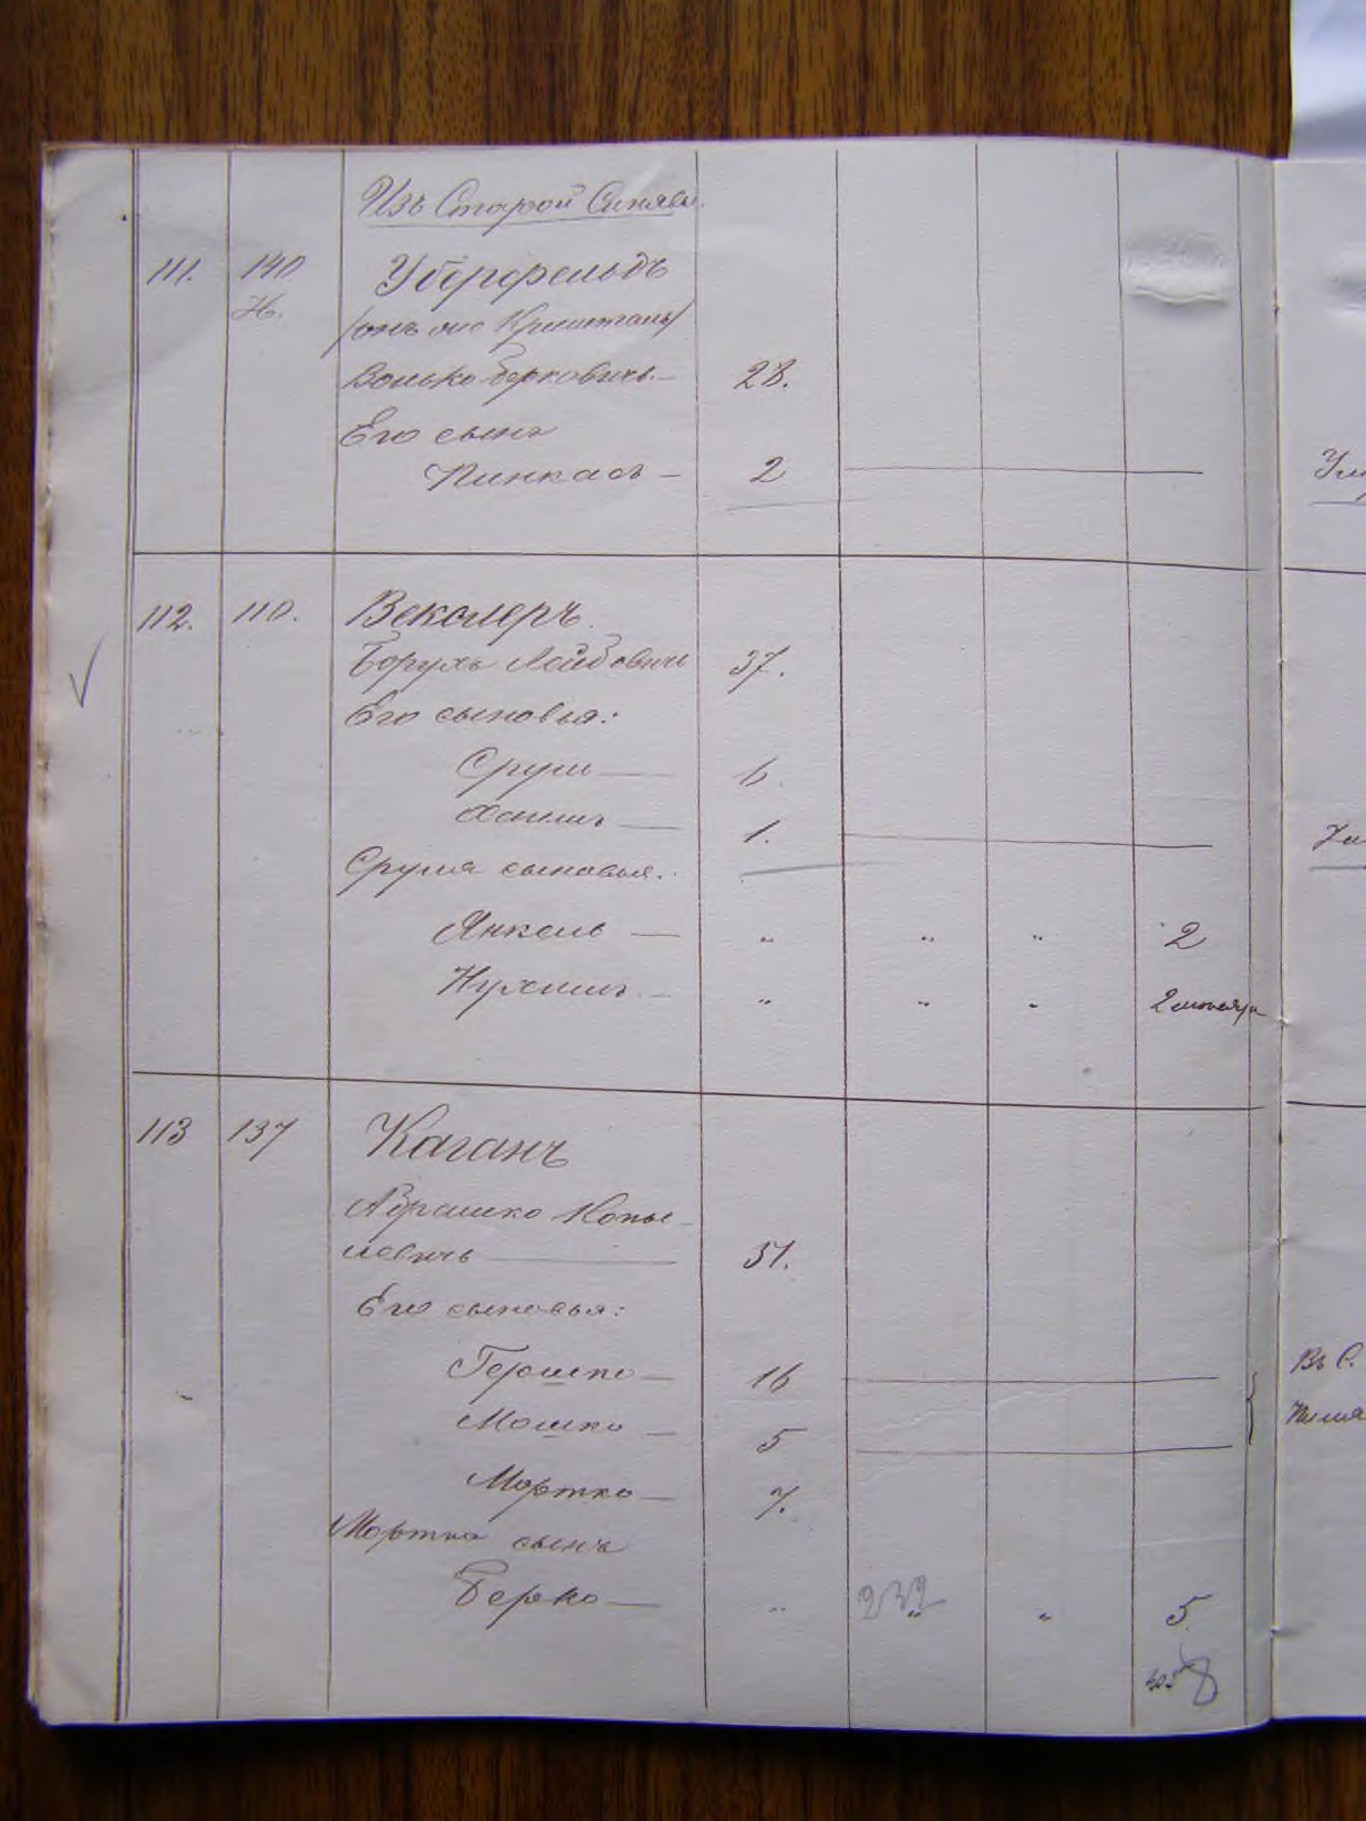 Изъ Старой Синявы.
111. 140 Уберфельдъ
Н. /онъ же Кришталь/
Волько Берковичъ. — 28.
Его сынъ
Пинкасъ — 2
112. 110. Векслеръ.
Борухъ Лейбовичъ 37.
Его сыновья:
Сруль — 6
Хаимъ — 1.
Сруля сыновья:
Янкель — " " " 2
Нухимъ — " " " 2 месяца
113 137 Каганъ
Абрашко Копе-
левичъ — 51.
Его сыновья:
Гершко — 16
Мошко — 5
Въ С.
Мортко — 7.
Мортка сынъ
Берко — " 232 " " 5
8